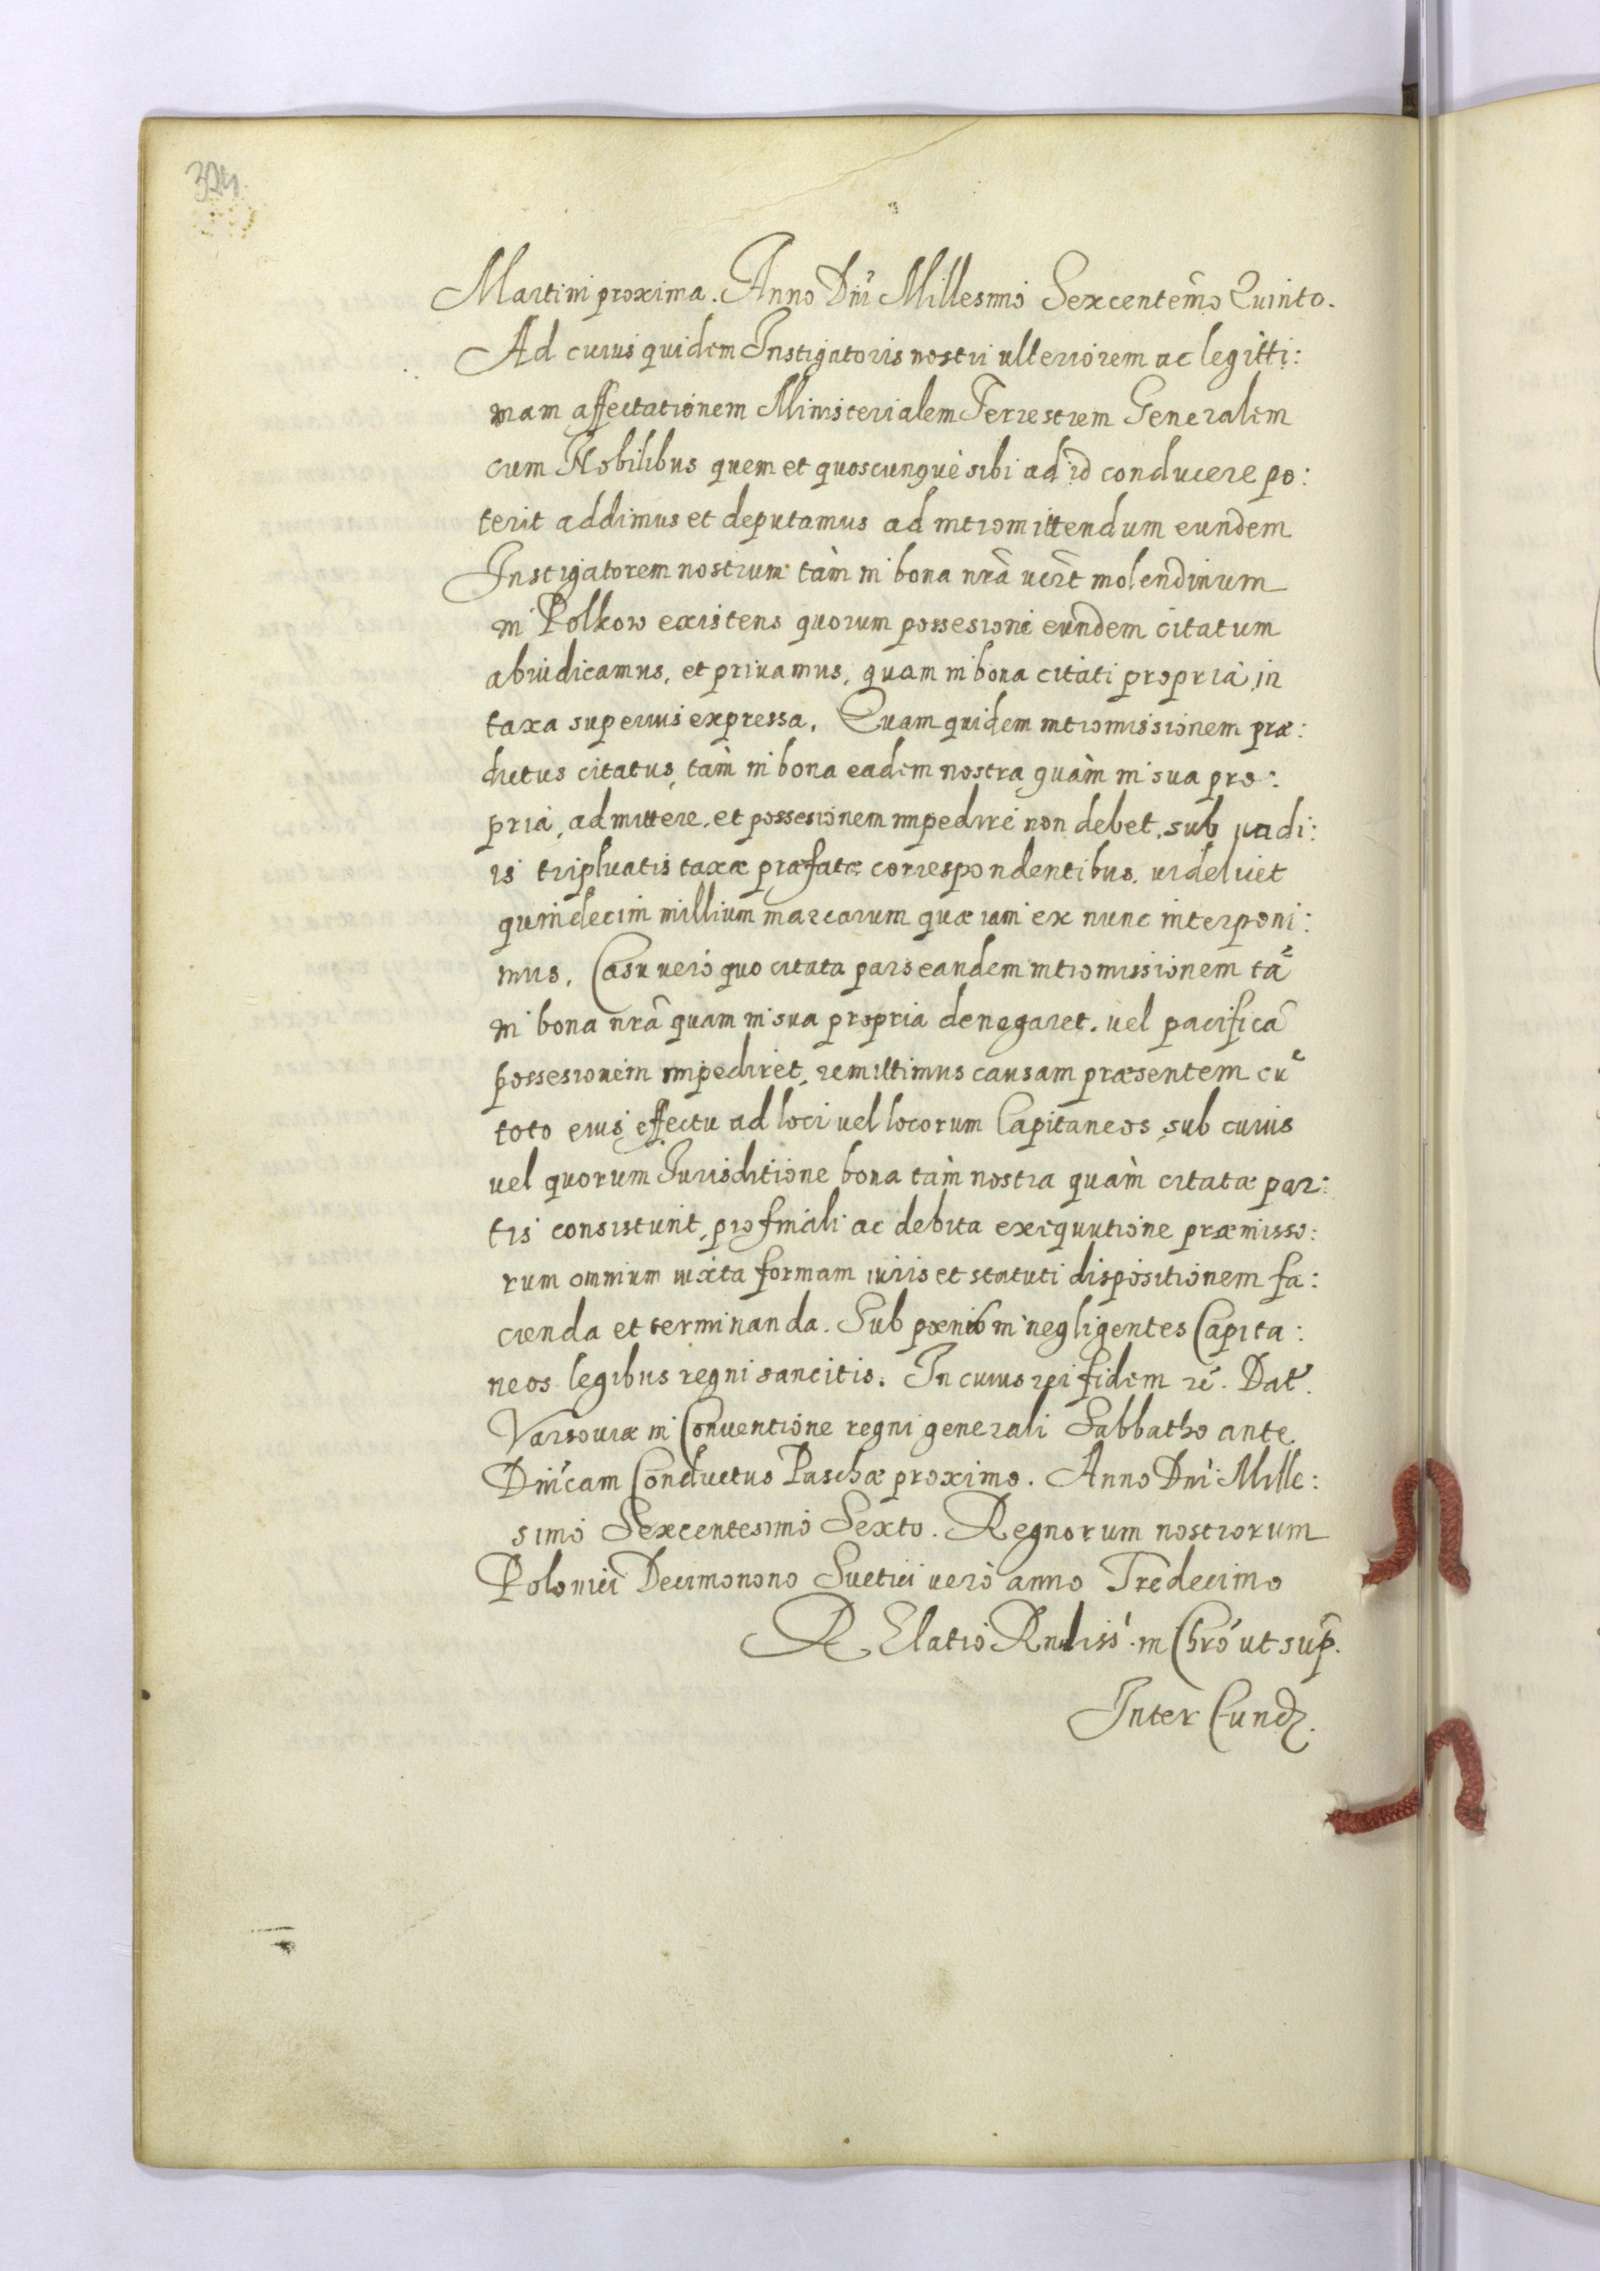 324.
Martini proxima. Anno Dni Millesimo Sexcentemo Quinto.
Ad cuius quidem Instigatoris nostri ulteriorem ac legitti:
mam affectationem Ministerialem Terrestrem Generalem
cum Nobilibus quem et quoscunque sibi ad id conducere po:
terit addimus et deputamus ad intromittendum eundem
Instigatorem nostrum tàm in bona nrã molendinum
in Polkow existens quorum possesioni eundem citatum
abiudicamus, et priuamus, quam in bona citati propria, in
taxa superius expressa. Quam quidem intromissionem præ:
dictus citatus, tàm in bona eadem nostra quàm in sua pro:
pria, admittere, et possesionem impedire non debet, sub uadi:
is triplicatis taxæ præfatæ correspondentibus, uidelicet
quindecim millium marcarum quæ iam ex nunc interponi:
mus. Casu uero quo citata pars eandem intromissionem tã
in bona nrã quam in sua propria denegaret, uel pacificã
possesionem impediret, remittimus causam præsentem cũ
toto eius effectu ad loci uel locorum Capitaneos, sub cuius
uel quorum Jurisditione bona tàm nostra quàm citatæ par:
tis consistunt, pro finali ac debita exequutione præmisso:
rum omnium iuxta formam iuris et statuti dispositionem fa:
cienda et terminanda. Sub pœnis in negligentes Capita:
neos legibus regni sancitis. In cuius rei fidem rc. Dat.
Varsouiæ in Conuentione regni generali Sabbatho ante
Dnicam Conductus Paschæ proximo. Anno Dni Mille:
simo Sexcentesimo Sexto. Regnorum nostrorum
Polonici Decimonono Suetici uero anno Tredecimo
RElatio Rndiss. in Chro ut sup.
Inter Cund.